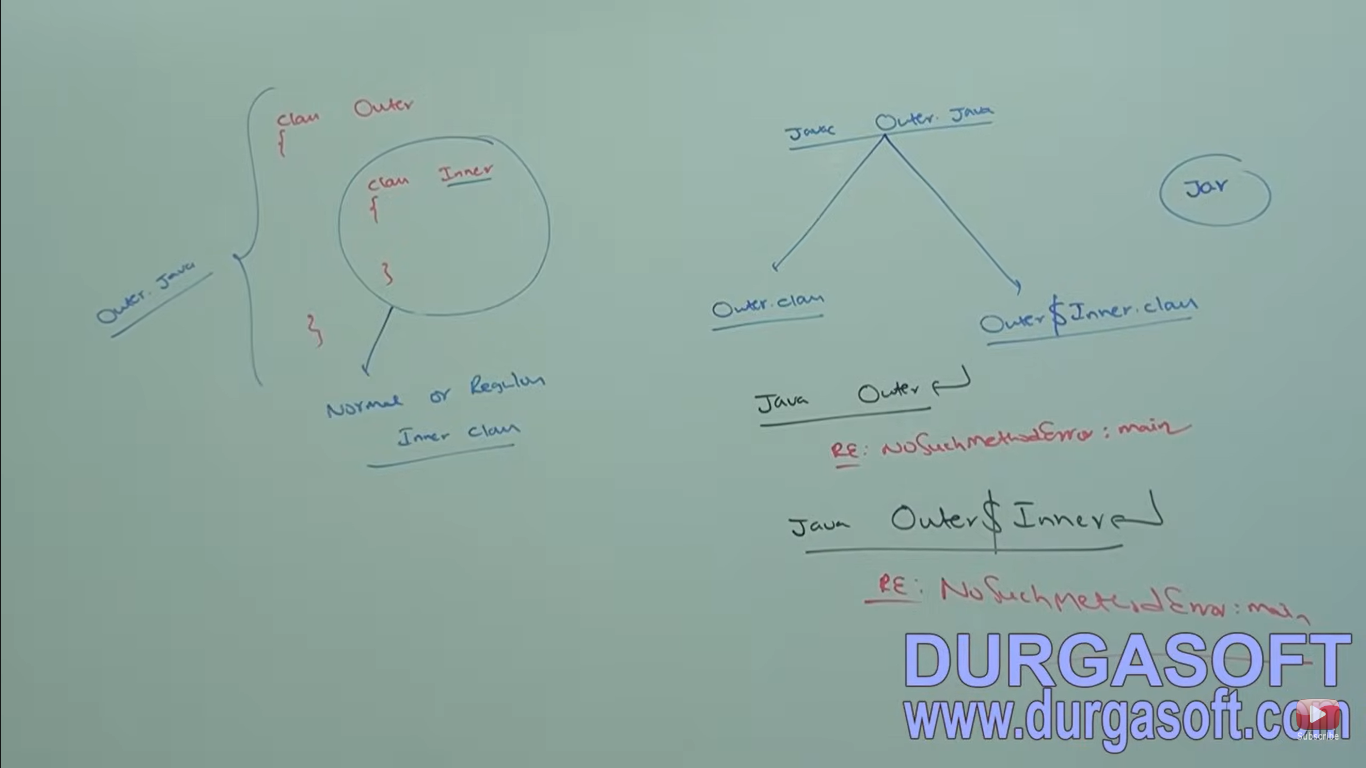 class Outer
{
class Inner
{
}
}
Outer.Java
Normal or Regular
Inner class
Javac Outer.Java
Jar
Outer.class
Outer$Inner.class
Java Outer↵
RE: NoSuchMethodError: main
Java Outer$Inner↵
RE: NoSuchMethodError: main
DURGASOFT
www.durgasoft.com
Subscribe